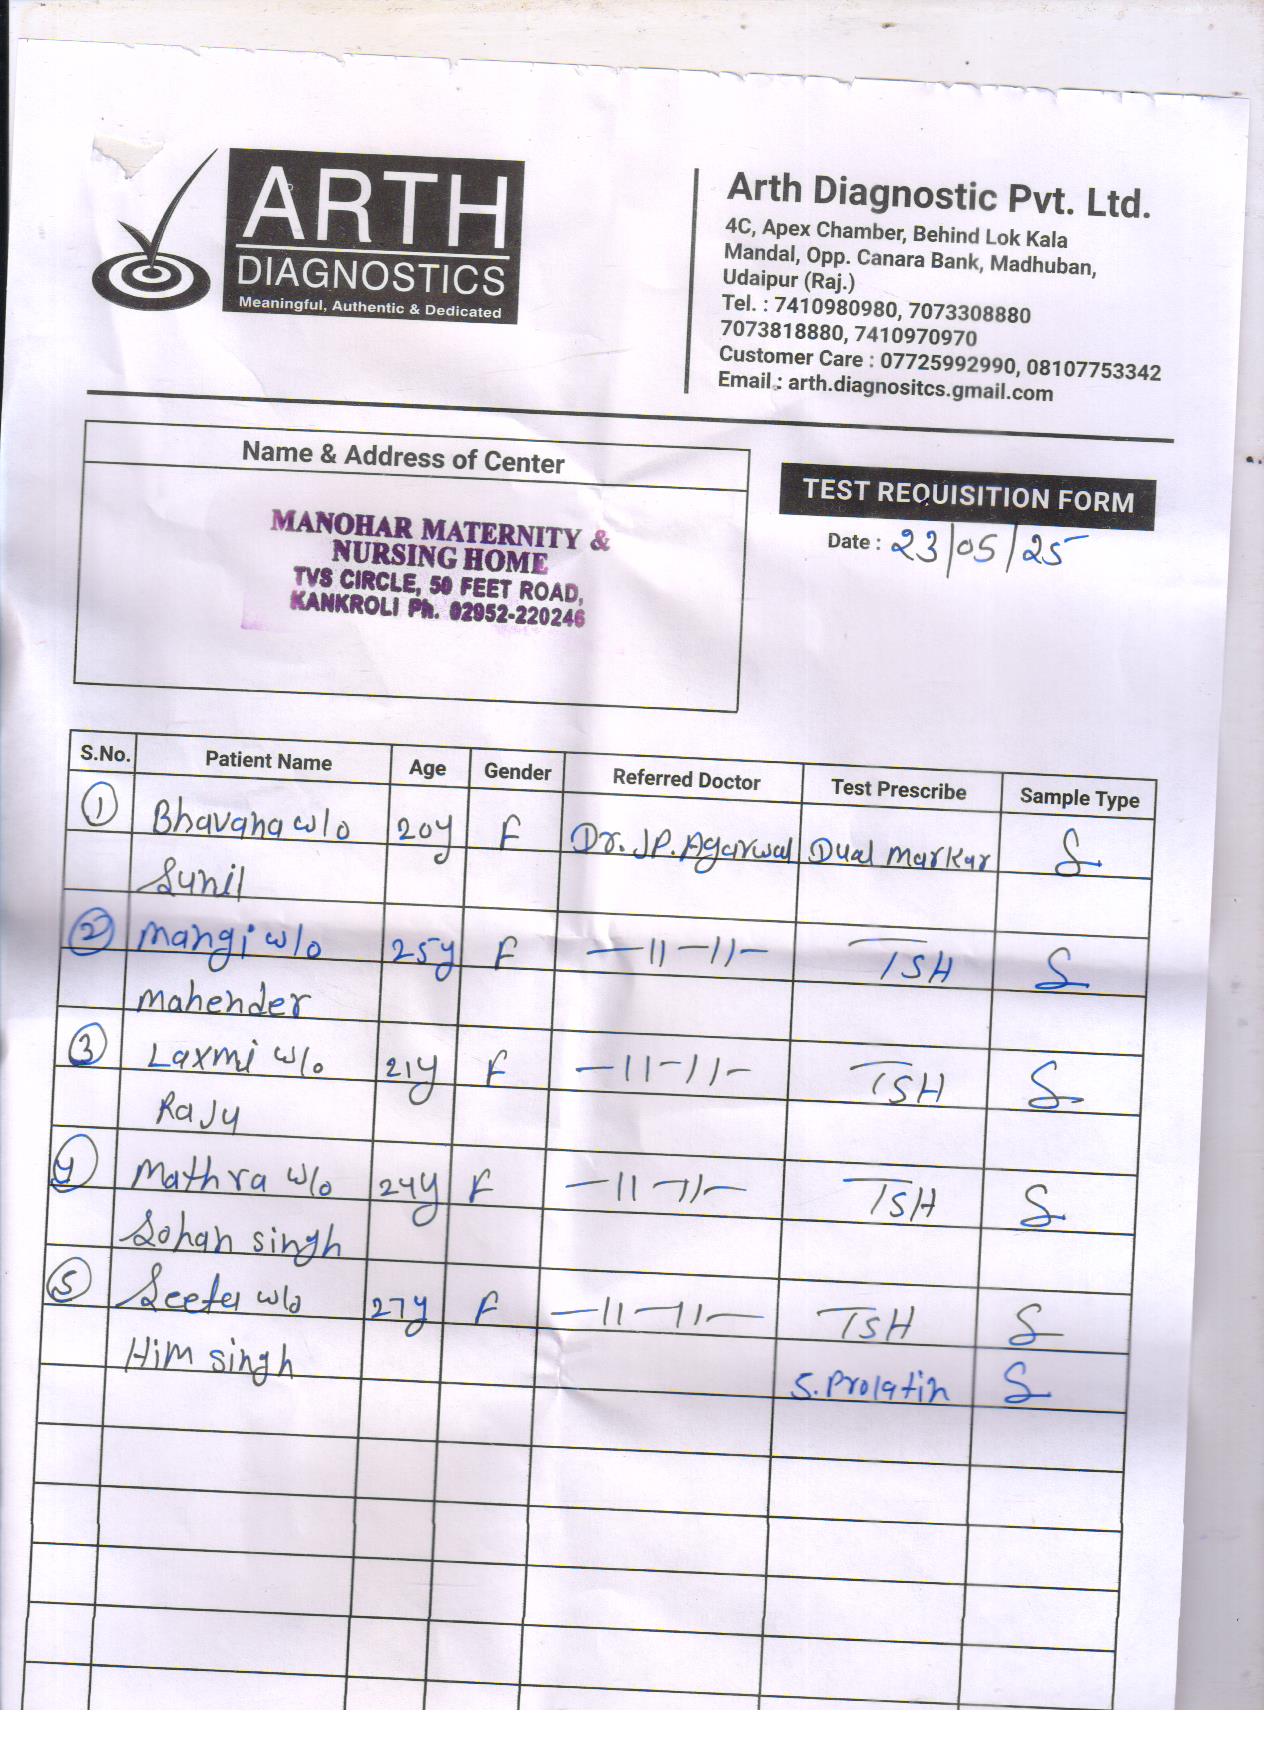 ARTH
DIAGNOSTICS
Meaningful, Authentic & Dedicated
Arth Diagnostic Pvt. Ltd.
4C, Apex Chamber, Behind Lok Kala
Mandal, Opp. Canara Bank, Madhuban,
Udaipur (Raj.)
Tel. : 7410980980, 7073308880
7073818880, 7410970970
Customer Care : 07725992990, 08107753342
Email : arth.diagnositcs.gmail.com
Name & Address of Center
MANOHAR MATERNITY &
NURSING HOME
TVS CIRCLE, 50 FEET ROAD,
KANKROLI Ph. 02952-220246
TEST REQUISITION FORM
Date : 23/05/25
S.No. Patient Name Age Gender Referred Doctor Test Prescribe Sample Type
1 Bhavana w/o 20y F Dr. JP. Agarwal Dual Markar S
Sunil
2 Mangi w/o 25y F —11—11— TSH S
Mahender
3 Laxmi w/o 21y F —11—11— TSH S
Raju
4 Mathra w/o 24y F —11—11— TSH S
Sohan singh
5 Seeta w/o 27y F —11—11— TSH S
Him singh S. Prolatin S